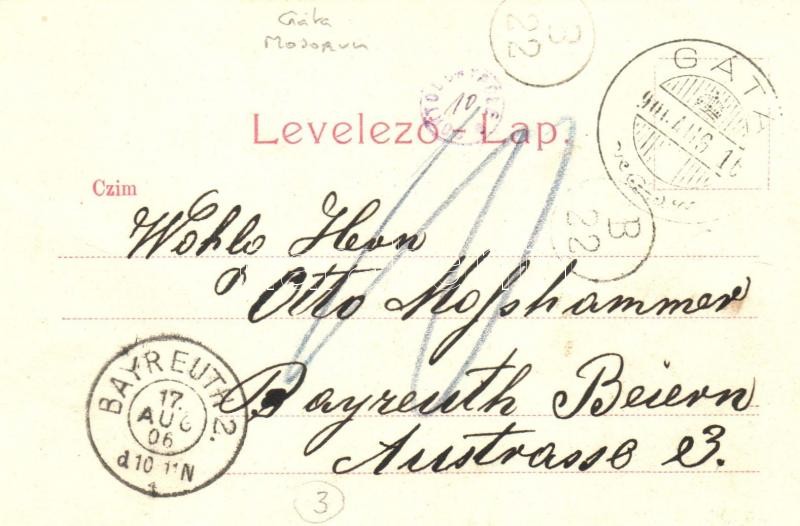 Gáta
Mosorun
B
22
GÁTA
906 AUG 16
10
Levelező-Lap.
Czim
B
22
Wohlo Hern
Otto Moßhammer
Bayreuth Beiern
Austrasse 23.
BAYREUTH 2.
17.
AUG
06
d 10-11 N
3